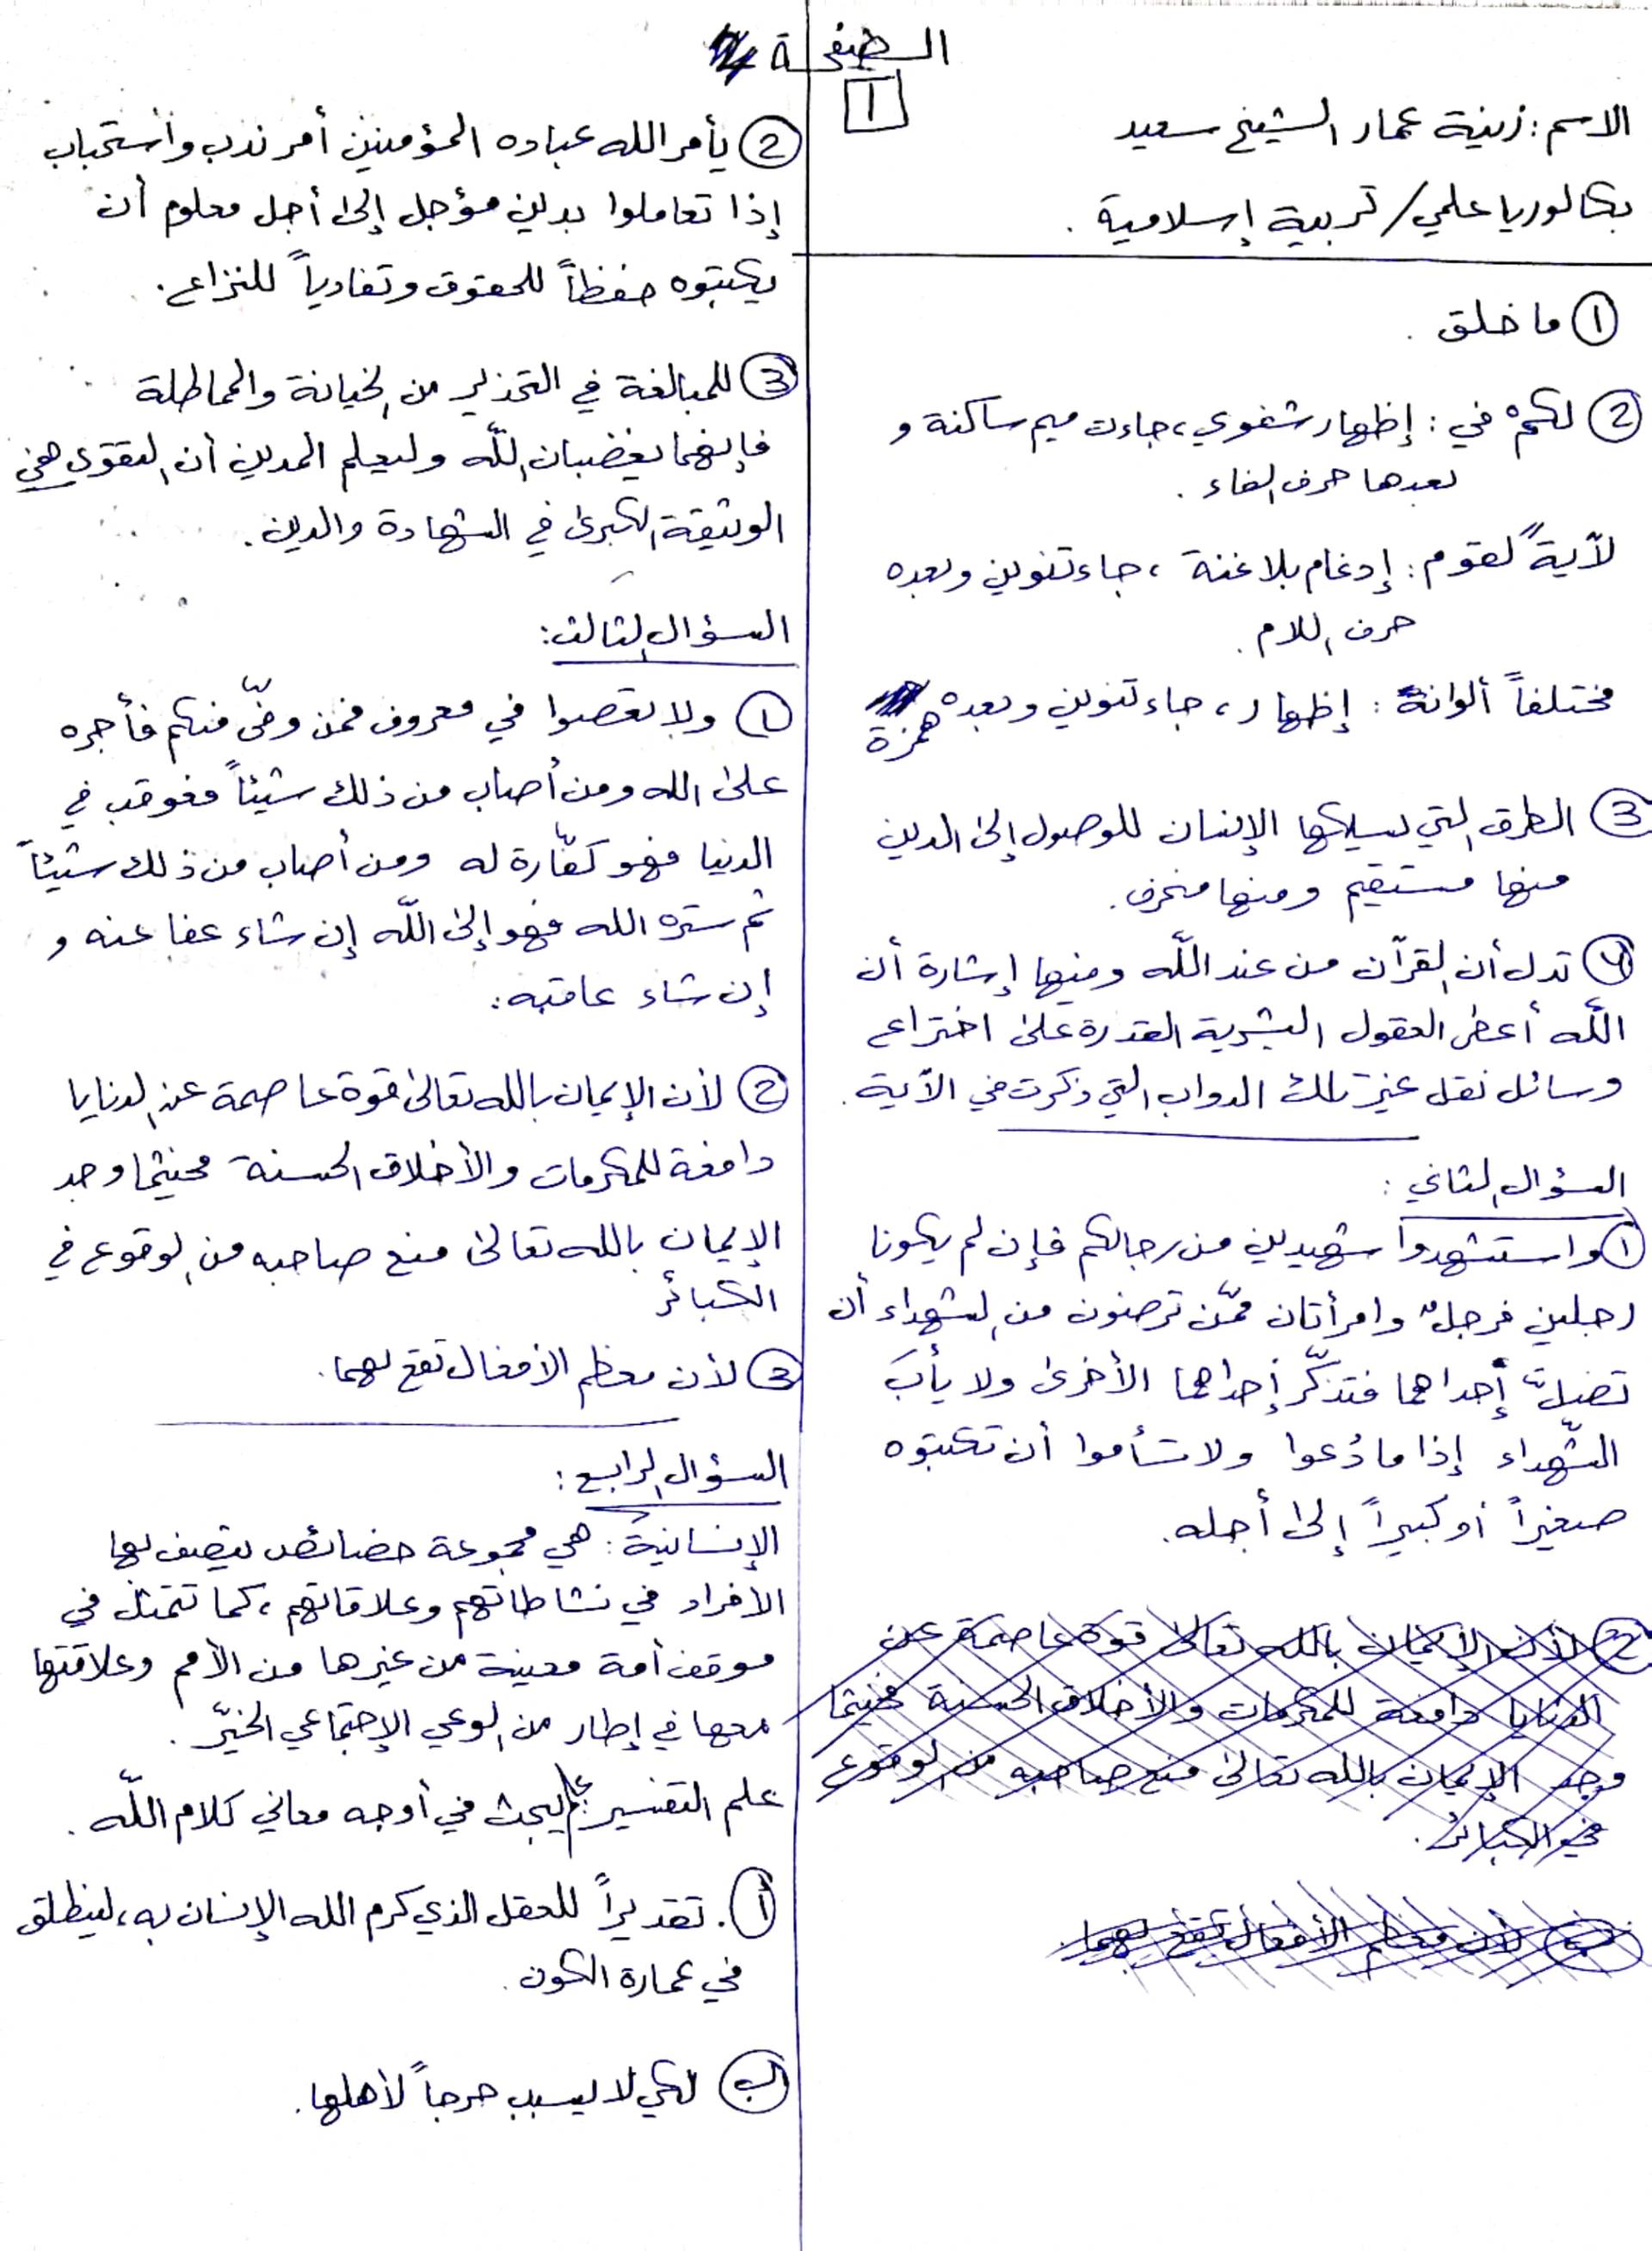 الصفحة
1
الاسم: زينة عمار الشيخ سعيد
بكالوريا علمي / تربية إسلامية.
① ما خلق.
② لكمْ في: إظهار شفوي، جاءت ميم ساكنة و
بعدها حرف الفاء.
لآيةً لقوم: إدغام بلا غنة، جاء تنوين وبعده
حرف اللام.
مختلفاً ألوانه: إظهار، جاء تنوين وبعده
همزة
③ الطرق التي يسلكها الإنسان للوصول إلى الدين
منها مستقيم ومنها منحرف.
④ تدل أن القرآن من عند اللّه ومنها إشارة أن
اللّه أعطى العقول البشرية القدرة على اختراع
وسائل نقل غير تلك الدواب التي ذكرت في الآية.
السؤال الثاني:
① واستشهدوا شهيدين من رجالكم فإن لم يكونا
رجلين فرجلٌ وامرأتان ممّن ترضون من الشهداء أن
تضلّ إحداهما فتذكّر إحداهما الأخرى ولا يأبَ
الشّهداء إذا ما دُعوا ولا تسأموا أن تكتبوه
صغيراً أو كبيراً إلى أجله.
② لأن الإيمان بالله تعالى قوة عاصمة عن
الدنايا دافعة للمكرمات والأخلاق الحسنة فحيثما
وجد الإيمان بالله تعالى منع صاحبه من الوقوع
في الكبائر.
لأن معظم الأفعال تقع بهما.
② يأمر الله عباده المؤمنين أمر ندب واستحباب
إذا تعاملوا بدين مؤجل إلى أجل معلوم أن
يكتبوه حفظاً للحقوق وتفادياً للنزاع.
③ للمبالغة في التحذير من الخيانة والمماطلة
فإنهما يغضبان اللّه وليعلم المدين أن التقوى هي
الوثيقة الكبرى في الشهادة والدين.
السؤال الثالث:
① ولا تعصوا في معروف فمن وفىّ منكم فأجره
على الله ومن أصاب من ذلك شيئاً فعوقب في
الدنيا فهو كفّارة له ومن أصاب من ذلك شيئاً
ثم ستره الله فهو إلى اللّه إن شاء عفا عنه و
إن شاء عاقبه.
② لأن الإيمان بالله تعالى قوة عاصمة عن الدنايا
دافعة للمكرمات والأخلاق الحسنة فحيثما وجد
الإيمان بالله تعالى منع صاحبه من الوقوع في
الكبائر
③ لأن معظم الأفعال تقع بهما.
السؤال الرابع:
الإنسانية: هي مجموعة خصائص يتصف بها
الأفراد في نشاطاتهم وعلاقاتهم، كما تتمثل في
موقف أمة معينة من غيرها من الأمم وعلاقتها
معها في إطار من الوعي الإجتماعي الخيّر.
علم التفسير: علم يبحث في أوجه معاني كلام اللّه.
أ. تقديراً للعقل الذي كرم الله الإنسان به، لينطلق
في عمارة الكون.
ب لكي لا يسبب حرجاً لأهلها.